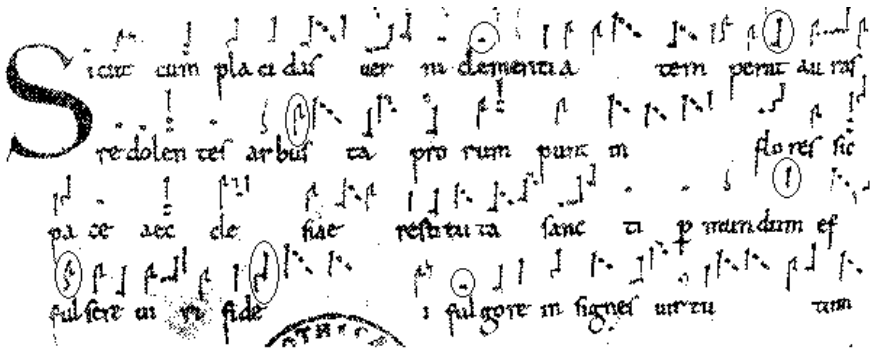 Sicut cum pla ci das uer ni clementia tem perat au ras
redolen tes arbus ta pro rum punt in flores sic
pa ce aec cle siae restitu ta sanc ti p mundum ef
fulsere ui ri fide i fulgore in signes uirtu tum
OTHICA